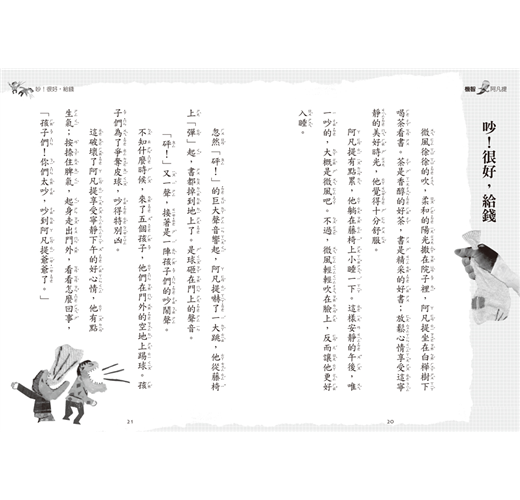 機智阿凡提
吵！很好，給錢
微風徐徐的吹，柔和的陽光撒在院子裡，阿凡提坐在白樺樹下
喝茶看書。茶是香醇的好茶，書是精采的好書；放鬆心情享受這寧
靜的美好時光，他覺得十分舒服。
阿凡提有點累，他躺在藤椅上小睡一下。這樣安靜的午後，唯
一吵的，大概是微風吧。不過，微風輕輕吹在臉上，反而讓他更好
入睡。
20
吵！很好，給錢
忽然「砰！」的巨大聲音響起，阿凡提嚇了一大跳，他從藤椅
上「彈」起，書都掉到地上了。是球砸在門上的聲音。
「砰！」又一聲，接著是一陣孩子們的吵鬧聲。
不知什麼時候，來了五個孩子，他們在門外的空地上踢球。孩
子們為了爭奪皮球，吵得特別凶。
這破壞了阿凡提享受寧靜下午的好心情，他有點
生氣；按捺住脾氣，起身走出門外，看看怎麼回事，
「孩子們！你們太吵，吵到阿凡提爺爺了。」
21